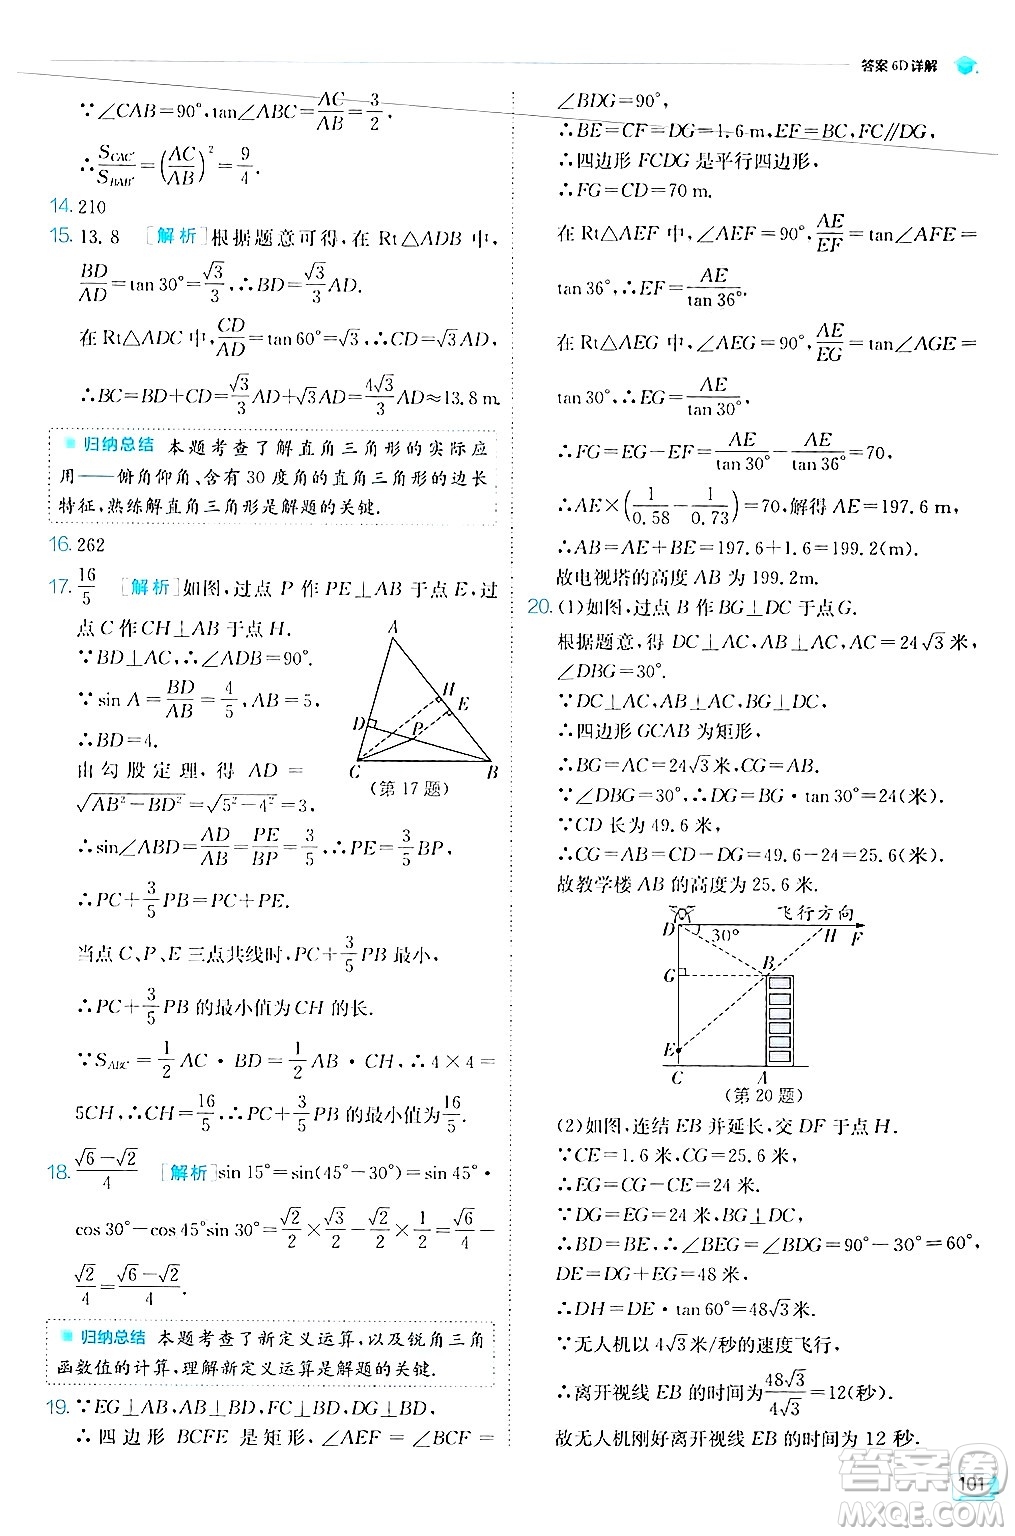 答案 6D 详解
∵∠CAB=90°,tan∠ABC=AC/AB=3/2,
∴S△CAC′/S△BAB′=(AC/AB)²=9/4.
14. 210
15. 13.8 [解析]根据题意可得,在 Rt△ADB 中,
BD/AD=tan 30°=√3/3,∴BD=√3/3 AD.
在 Rt△ADC 中,CD/AD=tan 60°=√3,∴CD=√3AD.
∴BC=BD+CD=√3/3 AD+√3AD=4√3/3 AD≈13.8 m.
归纳总结 本题考查了解直角三角形的实际应
用——俯角仰角、含有 30 度角的直角三角形的边长
特征,熟练解直角三角形是解题的关键.
16. 262
17. 16/5 [解析]如图,过点 P 作 PE⊥AB 于点 E,过
点 C 作 CH⊥AB 于点 H.
∵BD⊥AC,∴∠ADB=90°.
∵sin A=BD/AB=4/5,AB=5,
∴BD=4.
由勾股定理,得 AD=
√AB²-BD²=√5²-4²=3,
A
H
E
D
P
C
B
(第 17 题)
∴sin∠ABD=AD/AB=PE/BP=3/5,∴PE=3/5 BP,
∴PC+3/5 PB=PC+PE.
当点 C、P、E 三点共线时,PC+3/5 PB 最小,
∴PC+3/5 PB 的最小值为 CH 的长.
∵S△ABC=1/2 AC·BD=1/2 AB·CH,∴4×4=
5CH,∴CH=16/5,∴PC+3/5 PB 的最小值为 16/5.
18. (√6-√2)/4 [解析]sin 15°=sin(45°-30°)=sin 45°·
cos 30°-cos 45°sin 30°=√2/2×√3/2-√2/2×1/2=√6/4-
√2/4=(√6-√2)/4.
归纳总结 本题考查了新定义运算,以及锐角三角
函数值的计算,理解新定义运算是解题的关键.
19. ∵EG⊥AB,AB⊥BD,FC⊥BD,DG⊥BD,
∴四边形 BCFE 是矩形,∠AEF=∠BCF=
∠BDG=90°,
∴BE=CF=DG=1.6 m,EF=BC,FC∥DG,
∴四边形 FCDG 是平行四边形,
∴FG=CD=70 m.
在 Rt△AEF 中,∠AEF=90°,AE/EF=tan∠AFE=
tan 36°,∴EF=AE/tan 36°.
在 Rt△AEG 中,∠AEG=90°,AE/EG=tan∠AGE=
tan 30°,∴EG=AE/tan 30°,
∴FG=EG-EF=AE/tan 30°-AE/tan 36°=70,
∴AE×(1/0.58-1/0.73)=70,解得 AE=197.6 m,
∴AB=AE+BE=197.6+1.6=199.2(m).
故电视塔的高度 AB 为 199.2m.
20. (1)如图,过点 B 作 BG⊥DC 于点 G.
根据题意,得 DC⊥AC,AB⊥AC,AC=24√3 米,
∠DBG=30°.
∵DC⊥AC,AB⊥AC,BG⊥DC,
∴四边形 GCAB 为矩形,
∴BG=AC=24√3 米,CG=AB.
∵∠DBG=30°,∴DG=BG·tan 30°=24(米).
∵CD 长为 49.6 米,
∴CG=AB=CD-DG=49.6-24=25.6(米).
故教学楼 AB 的高度为 25.6 米.
飞行方向
D
30°
H
F
G
B
E
C
A
(第 20 题)
(2)如图,连结 EB 并延长,交 DF 于点 H.
∵CE=1.6 米,CG=25.6 米,
∴EG=CG-CE=24 米.
∵DG=EG=24 米,BG⊥DC,
∴BD=BE,∴∠BEG=∠BDG=90°-30°=60°,
DE=DG+EG=48 米,
∴DH=DE·tan 60°=48√3 米.
∵无人机以 4√3 米/秒的速度飞行,
∴离开视线 EB 的时间为 48√3/4√3=12(秒).
故无人机刚好离开视线 EB 的时间为 12 秒.
101
答案圈
MXQE.COM